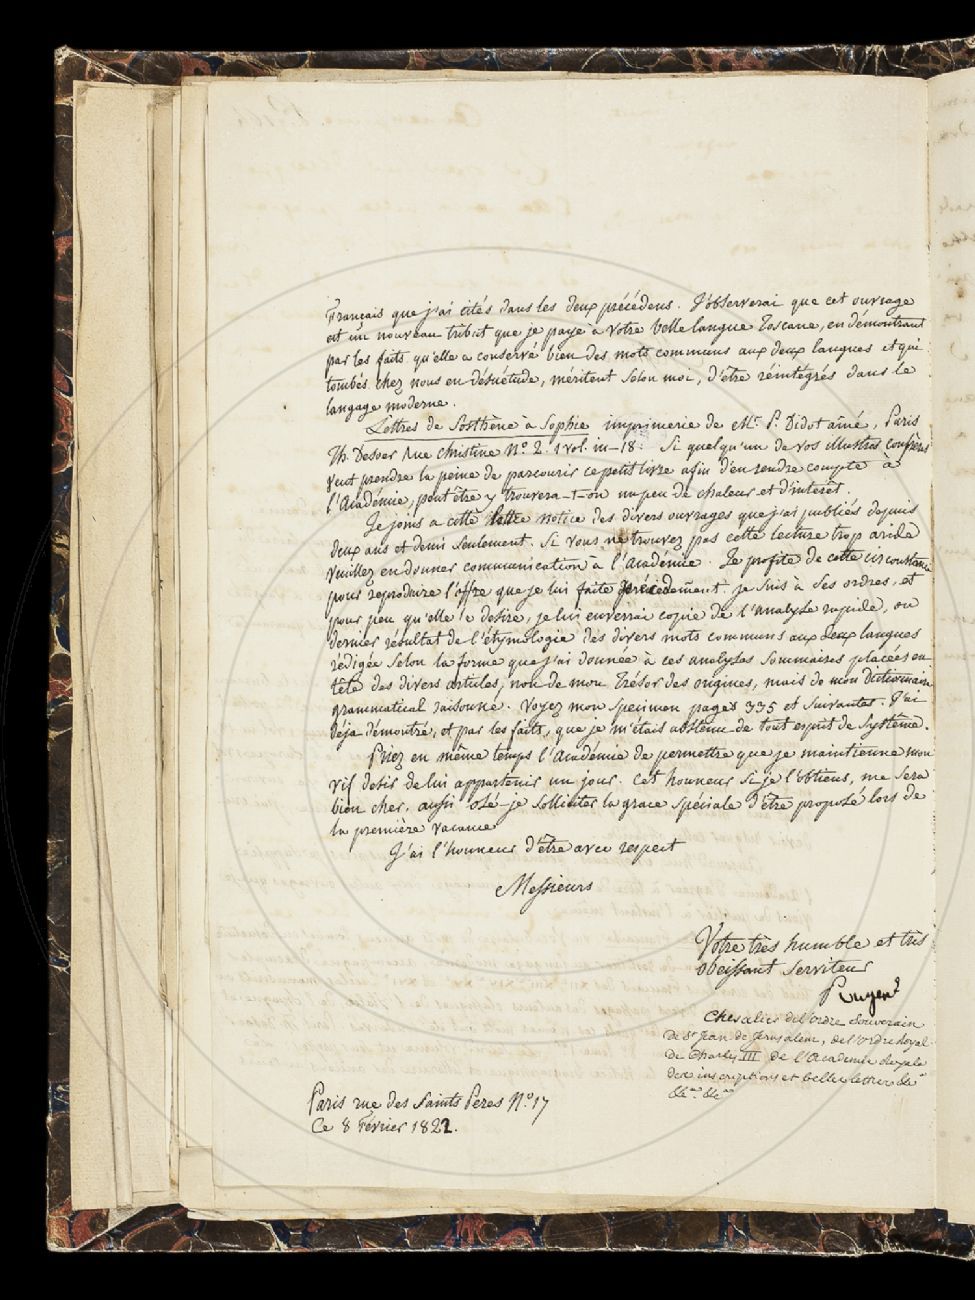 Français que j'ai cités dans les deux précédens. J'observerai que cet ouvrage
est un nouveau tribut que je paye à votre belle langue Toscane, en démontrant
par les faits qu'elle a conservé bien des mots communs aux deux langues et qui
tombés chez nous en désuétude, méritent selon moi, d'être réintégrés dans le
langage moderne.
Lettres de Sosthène à Sophie imprimerie de Mr P. Didot aîné, Paris
Th. Desoer Rue Christine No 2. 1 vol. in-18. Si quelqu'un de vos illustres confrères
veut prendre la peine de parcourir ce petit livre afin d'en rendre compte à
l'Académie, peut être y trouvera-t-on un peu de chaleur et d'intérêt.
Je joins a cette lettre notice des divers ouvrages que j'ai publiés depuis
deux ans et demi seulement. Si vous ne trouvez pas cette lecture trop aride
veuillez en donner communication à l'Académie. Je profite de cette circonstance
pour reproduire l'offre que je lui faite précédemment. je suis à ses ordres, et
pour peu qu'elle le desire, je lui enverrai copie de l'analyse rapide, ou
dernier résultat de l'étymologie des divers mots communs aux deux langues
rédigée selon la forme que j'ai donnée à ces analyses sommaires placées en
tête des divers articles, non de mon Trésor des origines, mais de mon dictionnaire
grammatical raisonné. Voyez mon specimen pages 335 et suivantes. J'ai
déja démontré, et par les faits, que je m'étais abstenu de tout esprit de système.
Priez en même temps l'Académie de permettre que je maintienne mon
vif desir de lui appartenir un jour. Cet honneur si je l'obtiens, me sera
bien cher. aussi osé-je solliciter la grace spéciale d'être proposé lors de
la première vacance
J'ai l'honneur d'être avec respect
Messieurs
Votre très humble et très
obeissant serviteur
Pougens
Chevalier de l'ordre Souverain
de St Jean de Jerusalem, de l'ordre Royal
de Charles III de l'Academie Royale
des inscriptions et belles lettres de
&ca &ca
Paris rue des Saints Peres No 17
Ce 8 Février 1822.